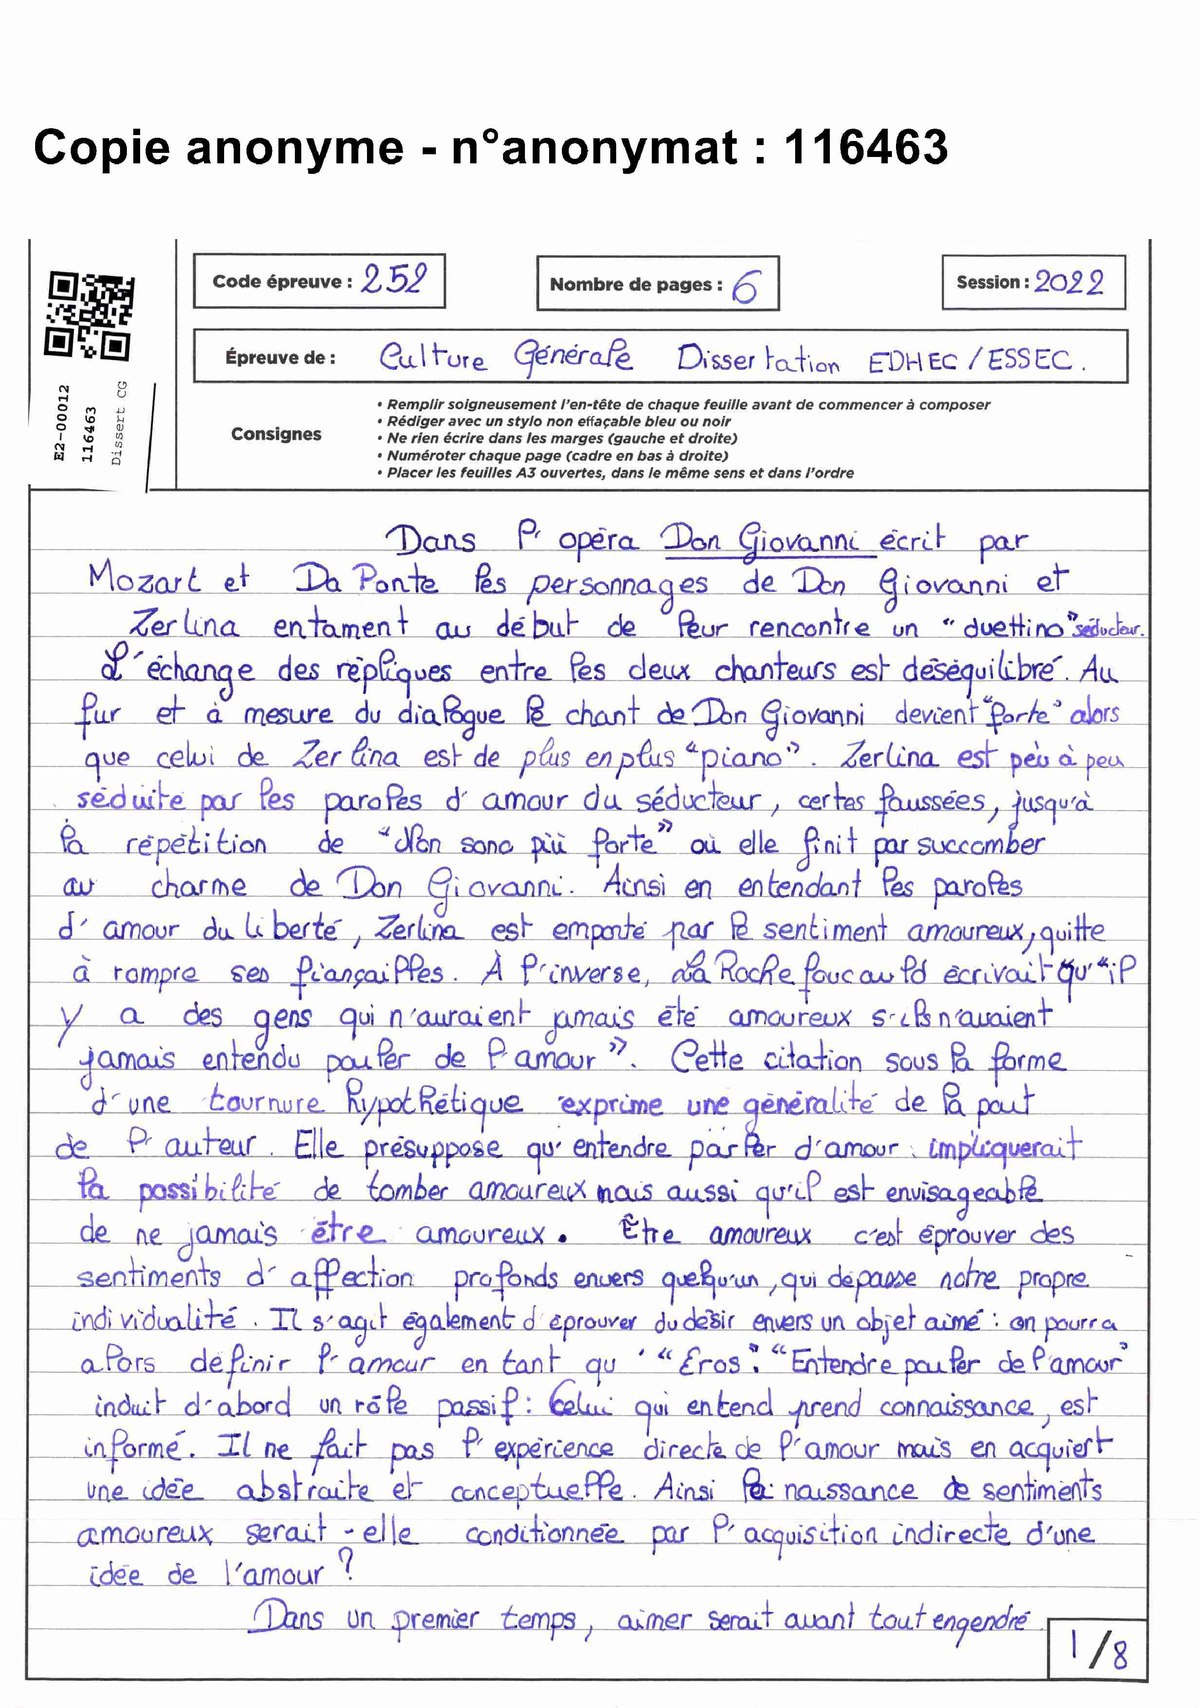 Copie anonyme - n°anonymat : 116463
Code épreuve : 252
Nombre de pages : 6
Session : 2022
Épreuve de : Culture Générale Dissertation EDHEC / ESSEC.
E2-00012
116463
Dissert CG
Consignes
• Remplir soigneusement l'en-tête de chaque feuille avant de commencer à composer
• Rédiger avec un stylo non effaçable bleu ou noir
• Ne rien écrire dans les marges (gauche et droite)
• Numéroter chaque page (cadre en bas à droite)
• Placer les feuilles A3 ouvertes, dans le même sens et dans l'ordre
Dans l'opéra Don Giovanni écrit par
Mozart et Da Ponte les personnages de Don Giovanni et
Zerlina entament au début de leur rencontre un "duettino" séducteur.
L'échange des répliques entre les deux chanteurs est déséquilibré. Au
fur et à mesure du dialogue le chant de Don Giovanni devient "forte" alors
que celui de Zerlina est de plus en plus "piano". Zerlina est peu à peu
séduite par les paroles d'amour du séducteur, certes faussées, jusqu'à
la répétition de "Non sono più forte" où elle finit par succomber
au charme de Don Giovanni. Ainsi en entendant les paroles
d'amour du liberté, Zerlina est emporté par le sentiment amoureux, quitte
à rompre ses fiançailles. À l'inverse, La Rochefoucauld écrivait qu'"il
y a des gens qui n'auraient jamais été amoureux s'ils n'avaient
jamais entendu parler de l'amour". Cette citation sous la forme
d'une tournure hypothétique exprime une généralité de la part
de l'auteur. Elle présuppose qu'entendre parler d'amour impliquerait
la possibilité de tomber amoureux mais aussi qu'il est envisageable
de ne jamais être amoureux. Être amoureux c'est éprouver des
sentiments d'affection profonds envers quelqu'un, qui dépasse notre propre
individualité. Il s'agit également d'éprouver du désir envers un objet aimé : on pourra
alors définir l'amour en tant qu'"Eros". "Entendre parler de l'amour"
induit d'abord un rôle passif : Celui qui entend prend connaissance, est
informé. Il ne fait pas l'expérience directe de l'amour mais en acquiert
une idée abstraite et conceptuelle. Ainsi la naissance de sentiments
amoureux serait-elle conditionnée par l'acquisition indirecte d'une
idée de l'amour ?
Dans un premier temps, aimer serait avant tout engendré
1/8